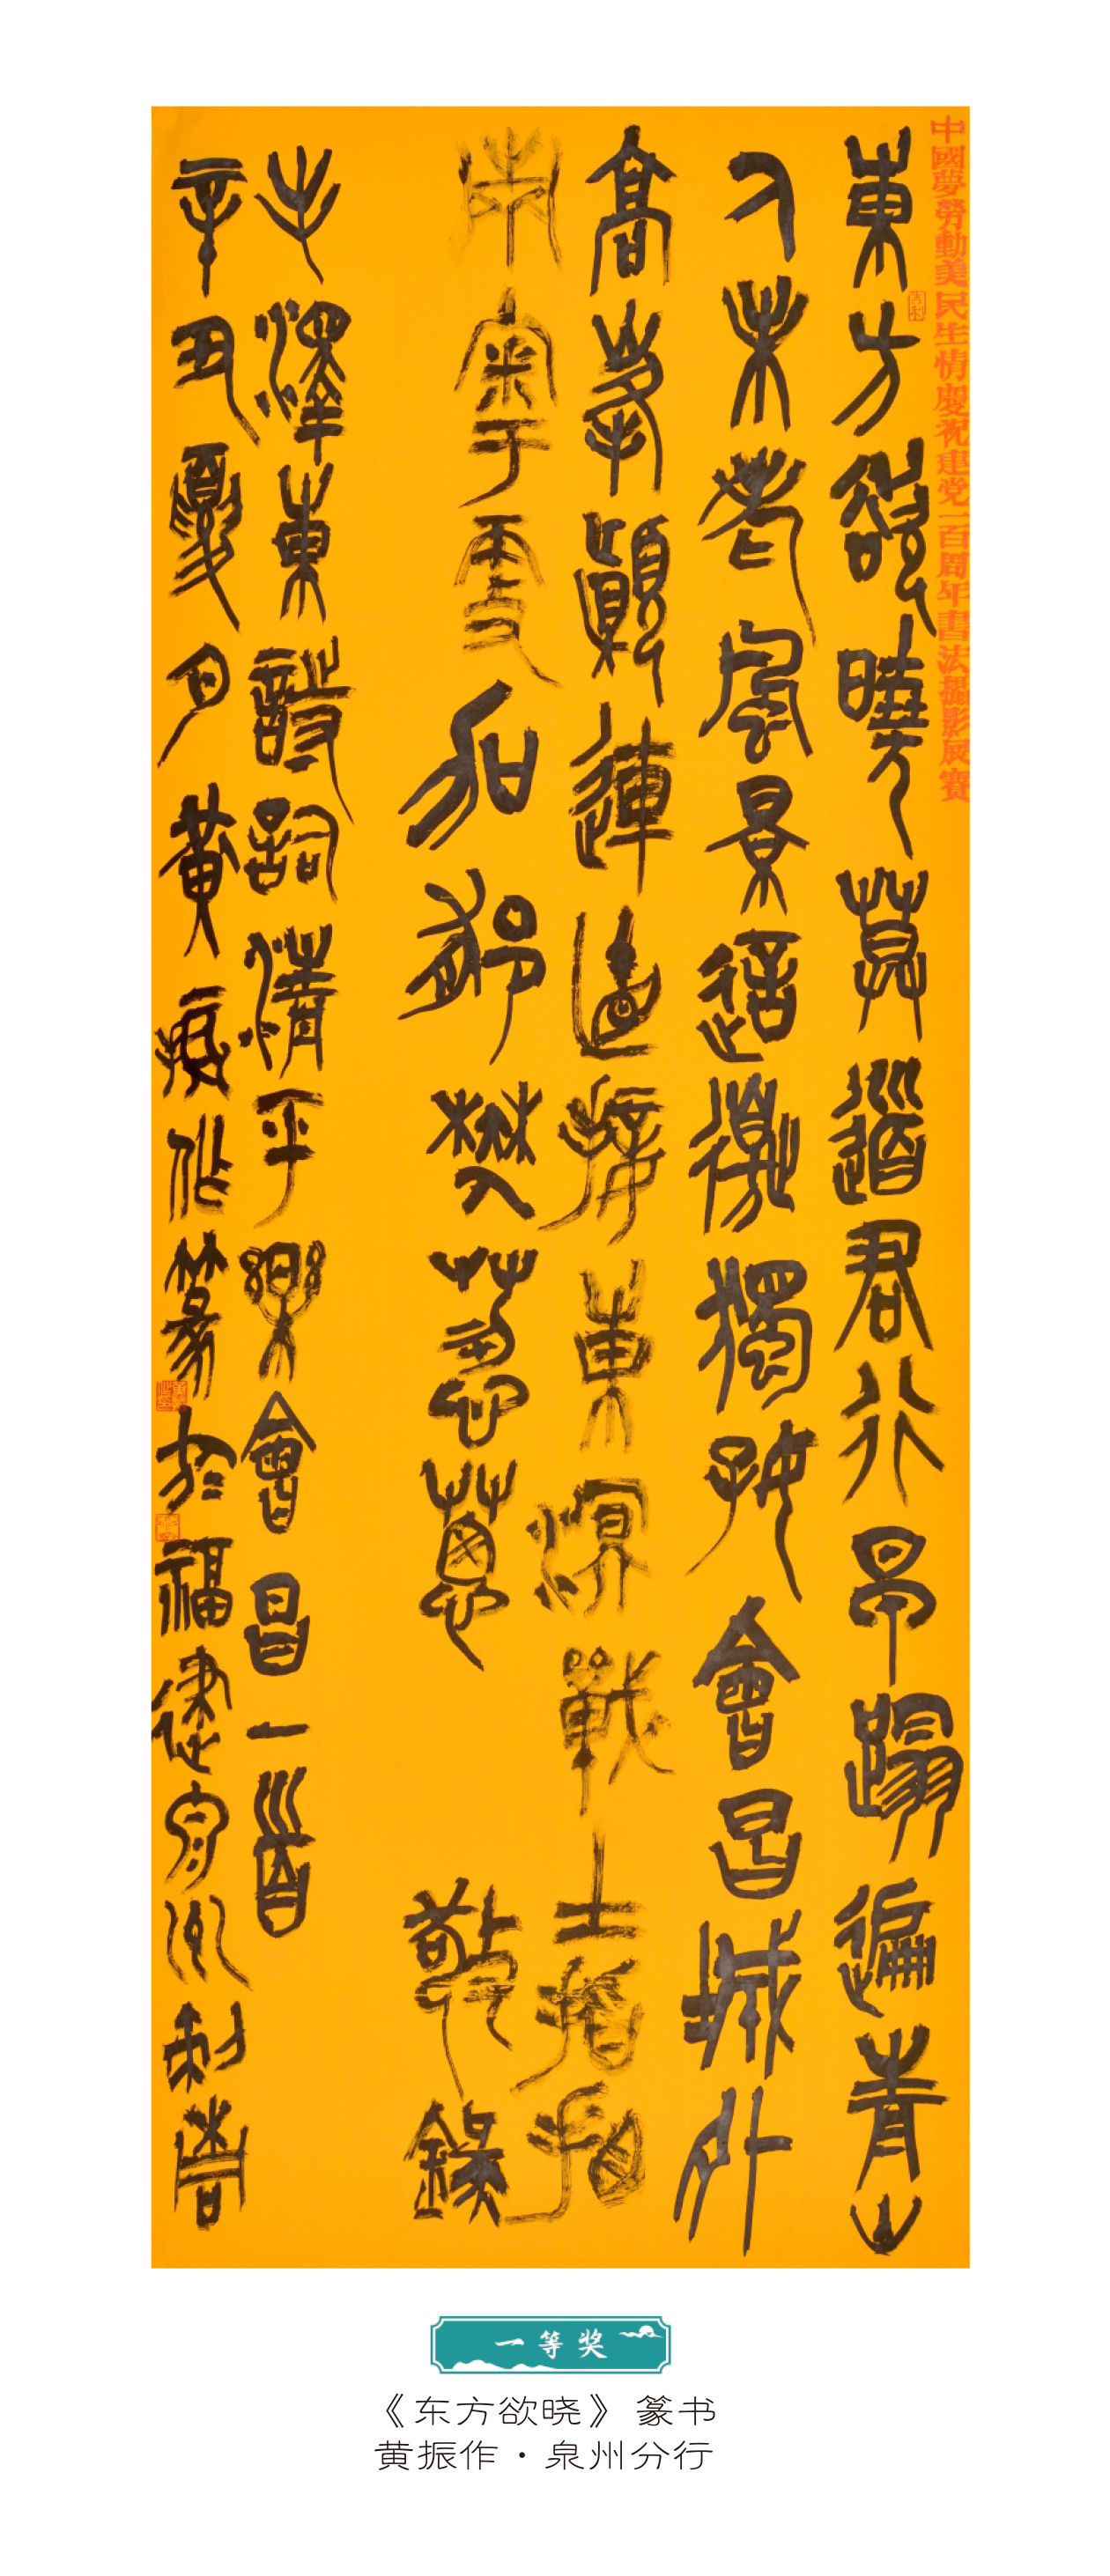 中國夢勞動美民生情慶祝建党一百周年書法攝影展賽
東方欲曉莫道君行早踏遍青山
人未老風景這邊獨好會昌城外
高峯顛連直接東溟戰士指看
南粵更加郁郁蔥蔥 敬錄
毛澤東詩詞清平樂會昌一首
辛丑夏月黃振作篆於福建泉州刺桐
一等奖
《东方欲晓》篆书
黄振作·泉州分行